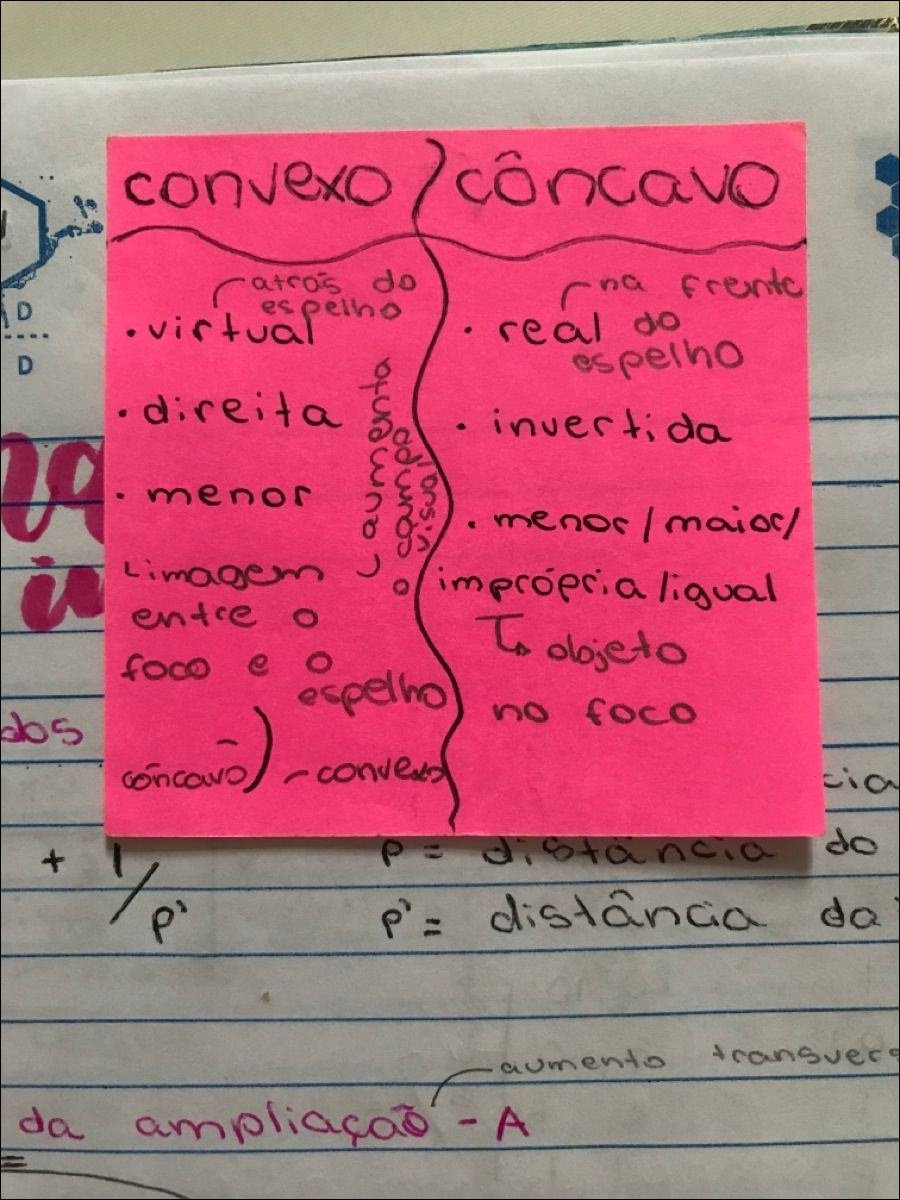 convexo
côncavo
atrás do
espelho
• virtual
• direita
• menor
imagem
entre o
foco e o
espelho
aumenta
o campo
visual
côncavo ) - convexo
na frente
• real do
espelho
• invertida
• menor/maior/
imprópria/igual
↳ objeto
no foco
D
D
dos
cia
+ 1/p'
p = distância do
p' = distância da
aumento transvers
da ampliação - A